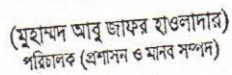 (মুহাম্মদ আবু জাফর হাওলাদার)
পরিচালক (প্রশাসন ও মানব সম্পদ)